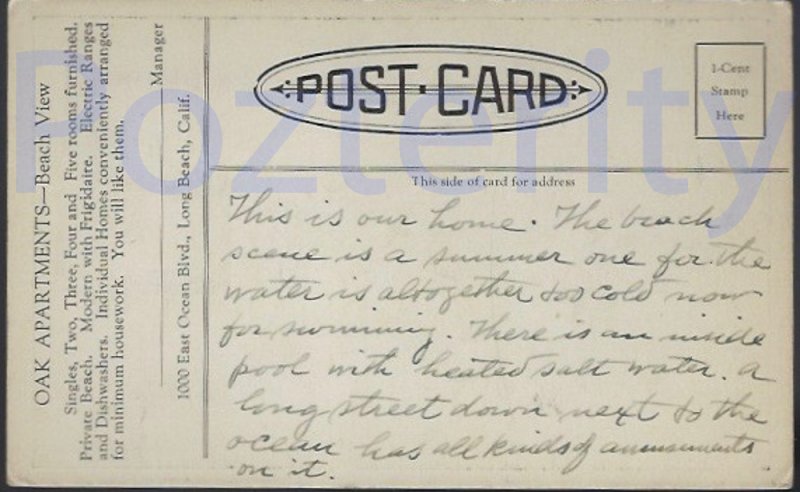 OAK APARTMENTS—Beach View
Singles, Two, Three, Four and Five rooms furnished.
Private Beach. Modern with Frigidaire. Electric Ranges
and Dishwashers. Individual Homes conveniently arranged
for minimum housework. You will like them.
Manager
1000 East Ocean Blvd., Long Beach, Calif.
POST·CARD
1-Cent
Stamp
Here
This side of card for address
This is our home. The beach
scene is a summer one for the
water is altogether too cold now
for swimming. There is an inside
pool with heated salt water. A
long street down next to the
ocean has all kinds of amusements
on it.
Pozterity